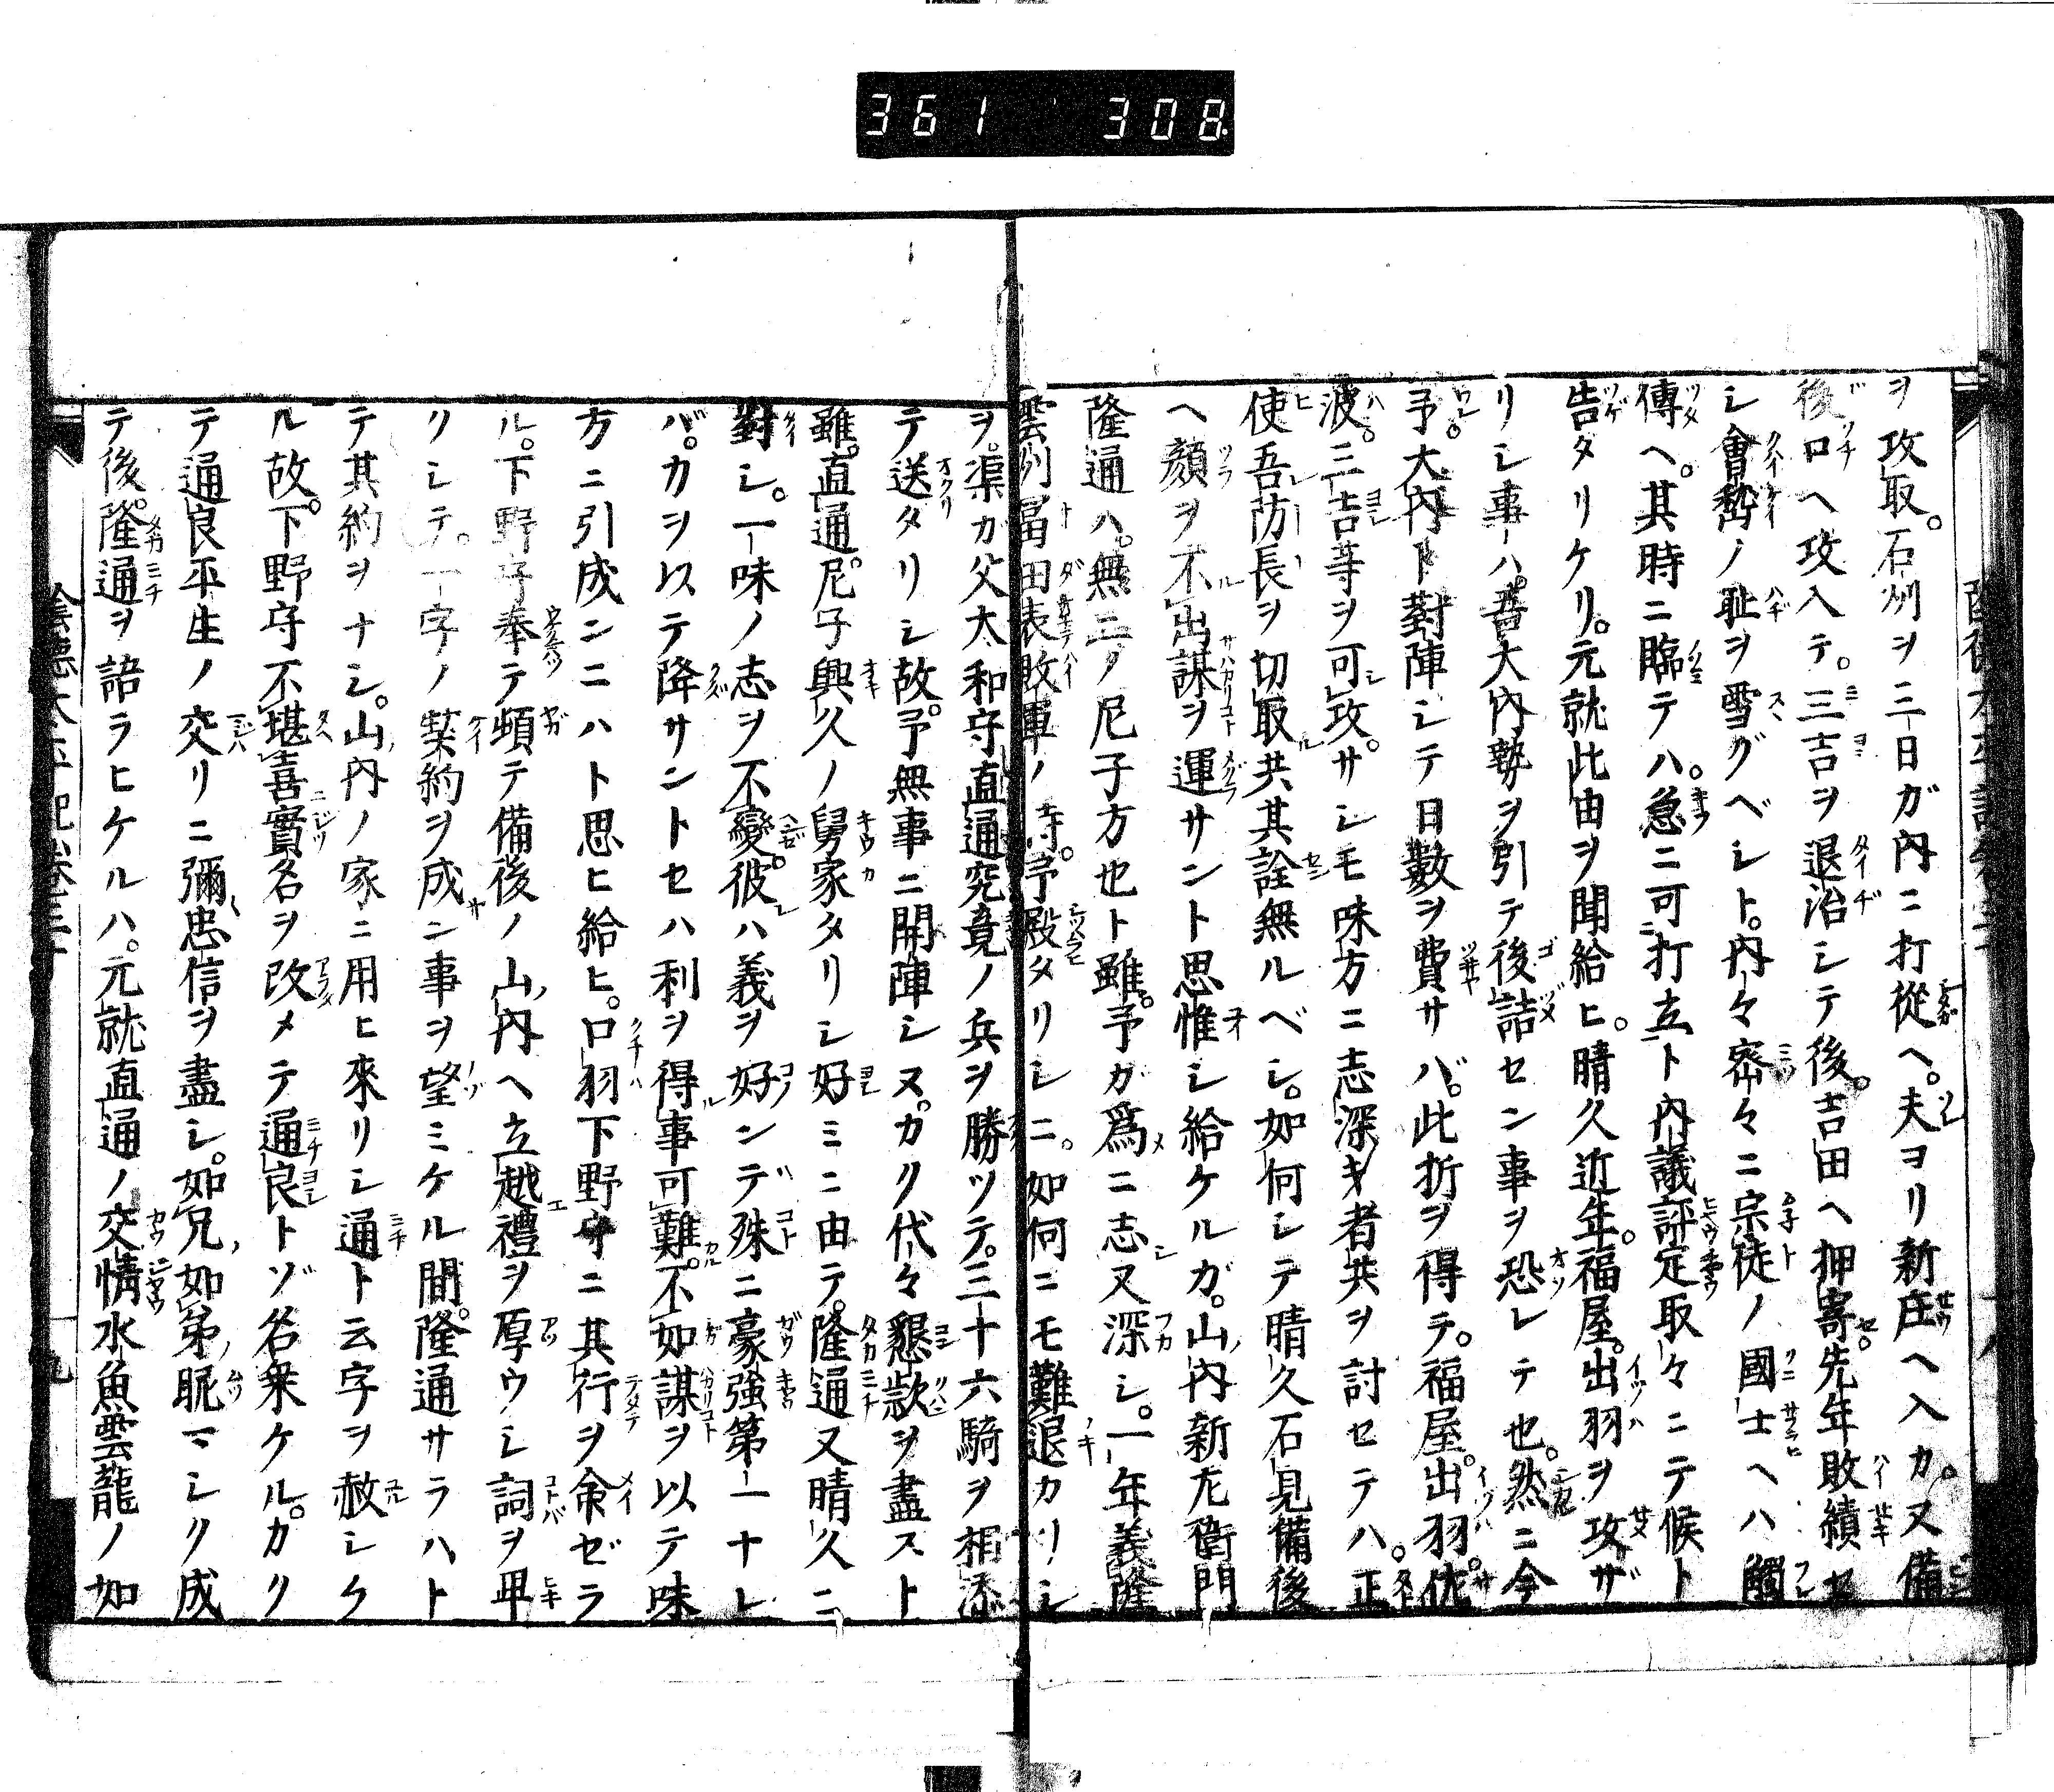 361 308
ヲ攻取。石州ヲ三日ガ内ニ打從ヘ。夫ヨリ新庄ヘ入カ。又備
後口ヘ攻入テ。三吉ヲ退治シテ後。吉田ヘ押寄。先年敗績セ
シ會稽ノ恥ヲ雪グベシト。内々密々ニ宗徒ノ國士ヘハ觸
傳ヘ。其時ニ臨テハ。急ニ可打立ト内議評定取々ニテ候ト
告タリケリ。元就此由ヲ聞給ヒ。晴久近年。福屋。出羽ヲ攻ザ
リシ事ハ。吾大内勢ヲ引テ後詰セン事ヲ恐レテ也。然ニ今
予。大内ト對陣シテ日數ヲ費サバ。此折ヲ得テ。福屋。出羽。佐
波。三吉等ヲ可攻。サシモ味方ニ志深キ者共ヲ討セテハ。正
使吾防長ヲ切取共其詮無ルベシ。如何シテ晴久石見備後
ヘ顔ヲ不出謀ヲ運サント思惟シ給ケルガ。山内新左衛門
隆通ハ。無二ノ尼子方也ト雖。予ガ爲ニ志又深シ。一年義隆
雲州冨田表敗軍ノ時。予殿タリシニ。如何ニモ難退カリシ
ヲ。渠ガ父大和守直通究竟ノ兵ヲ勝ツテ。三十六騎ヲ相添
テ送タリシ故。予無事ニ開陣シヌ。カク代々懇款ヲ盡スト
雖。直通尼子興久ノ舅家タリシ好ミニ由テ。隆通又晴久ニ
對シ。一味ノ志ヲ不變。彼ハ義ヲ好ンデ殊ニ豪強第一ナレ
バ。力ヲ以テ降サントセハ利ヲ得事可難。不如謀ヲ以テ味
方ニ引成ンニハト思ヒ給ヒ。口羽下野守ニ其行ヲ命ゼラ
ル。下野守奉テ頓テ備後ノ山内ヘ立越禮ヲ厚ウシ詞ヲ卑
クシテ。一字ノ契約ヲ成ン事ヲ望ミケル間。隆通サラハト
テ其約ヲナシ。山内ノ家ニ用ヒ來リシ通ト云字ヲ赦シケ
ル故。下野守不堪喜實名ヲ改メテ通良トゾ名乗ケル。カク
テ通良平生ノ交リニ彌忠信ヲ盡シ。如兄如弟昵マシク成
テ後。隆通ヲ語ラヒケルハ。元就直通ノ交情水魚雲龍ノ如